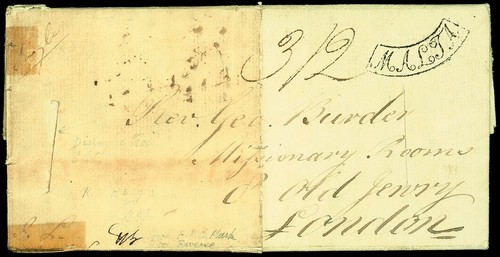 3/2
MALTA
Rev. Geo. Burder
Missionary Rooms
8 old Jewry
London
Mark
Reverse